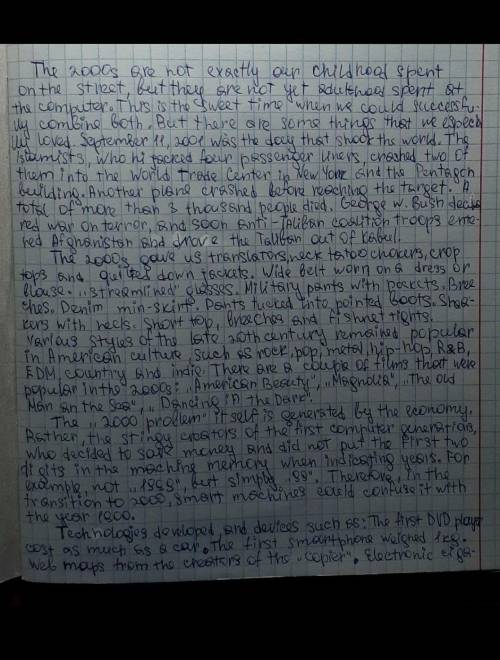 The 2000s are not exactly our childhood spent
on the street, but they are not yet adulthood spent at
the computer. This is the sweet time when we could successfu-
lly combine both. But there are some things that we especi
ally loved. September 11, 2001 was the day that shook the world. The
Islamists, who hijacked four passenger liners, crashed two of
them into the World Trade Center in New York and the Pentagon
building. Another plane crashed before reaching the target. A
total of more than 3 thousand people died. George W. Bush decla
red war on terror, and soon anti-Taliban coalition troops ente-
red Afghanistan and drove the Taliban out of Kabul.
The 2000s gave us translators, neck tatoo chokers, crop
tops and quilted down jackets. Wide belt worn on a dress or
blouse. „Streamlined" glasses. Military pants with pockets. Bree
ches. Denim min-skirt. Pants tucked into pointed boots. Snea-
kers with heels. Short top, breeches and fishnet tights.
Various styles of the late 20th century remained popular
in American culture, such as rock, pop, metal, hip-hop, R&B,
EDM, country and indie. There are a couple of films that were
popular in the 2000s: „American Beauty", „Magnolia", „The Old
Man an the Sea", „Dancing in the Dark".
The „2000 problem" itself is generated by the economy.
Rather, the stingy creators of the first computer generation,
who decided to save money and did not put the first two
digits in the machine memory when indicating years. For
example, not „1999", but simply „99". Therefore, in the
transition to 2000, smart machines could confuse it with
the year 1900.
Technologies developed, and devices such as: The first DVD player
cost as much as a car. The first smartphone weighed 1 kg.
Web maps from the creators of the „copier". Electronic ciga-